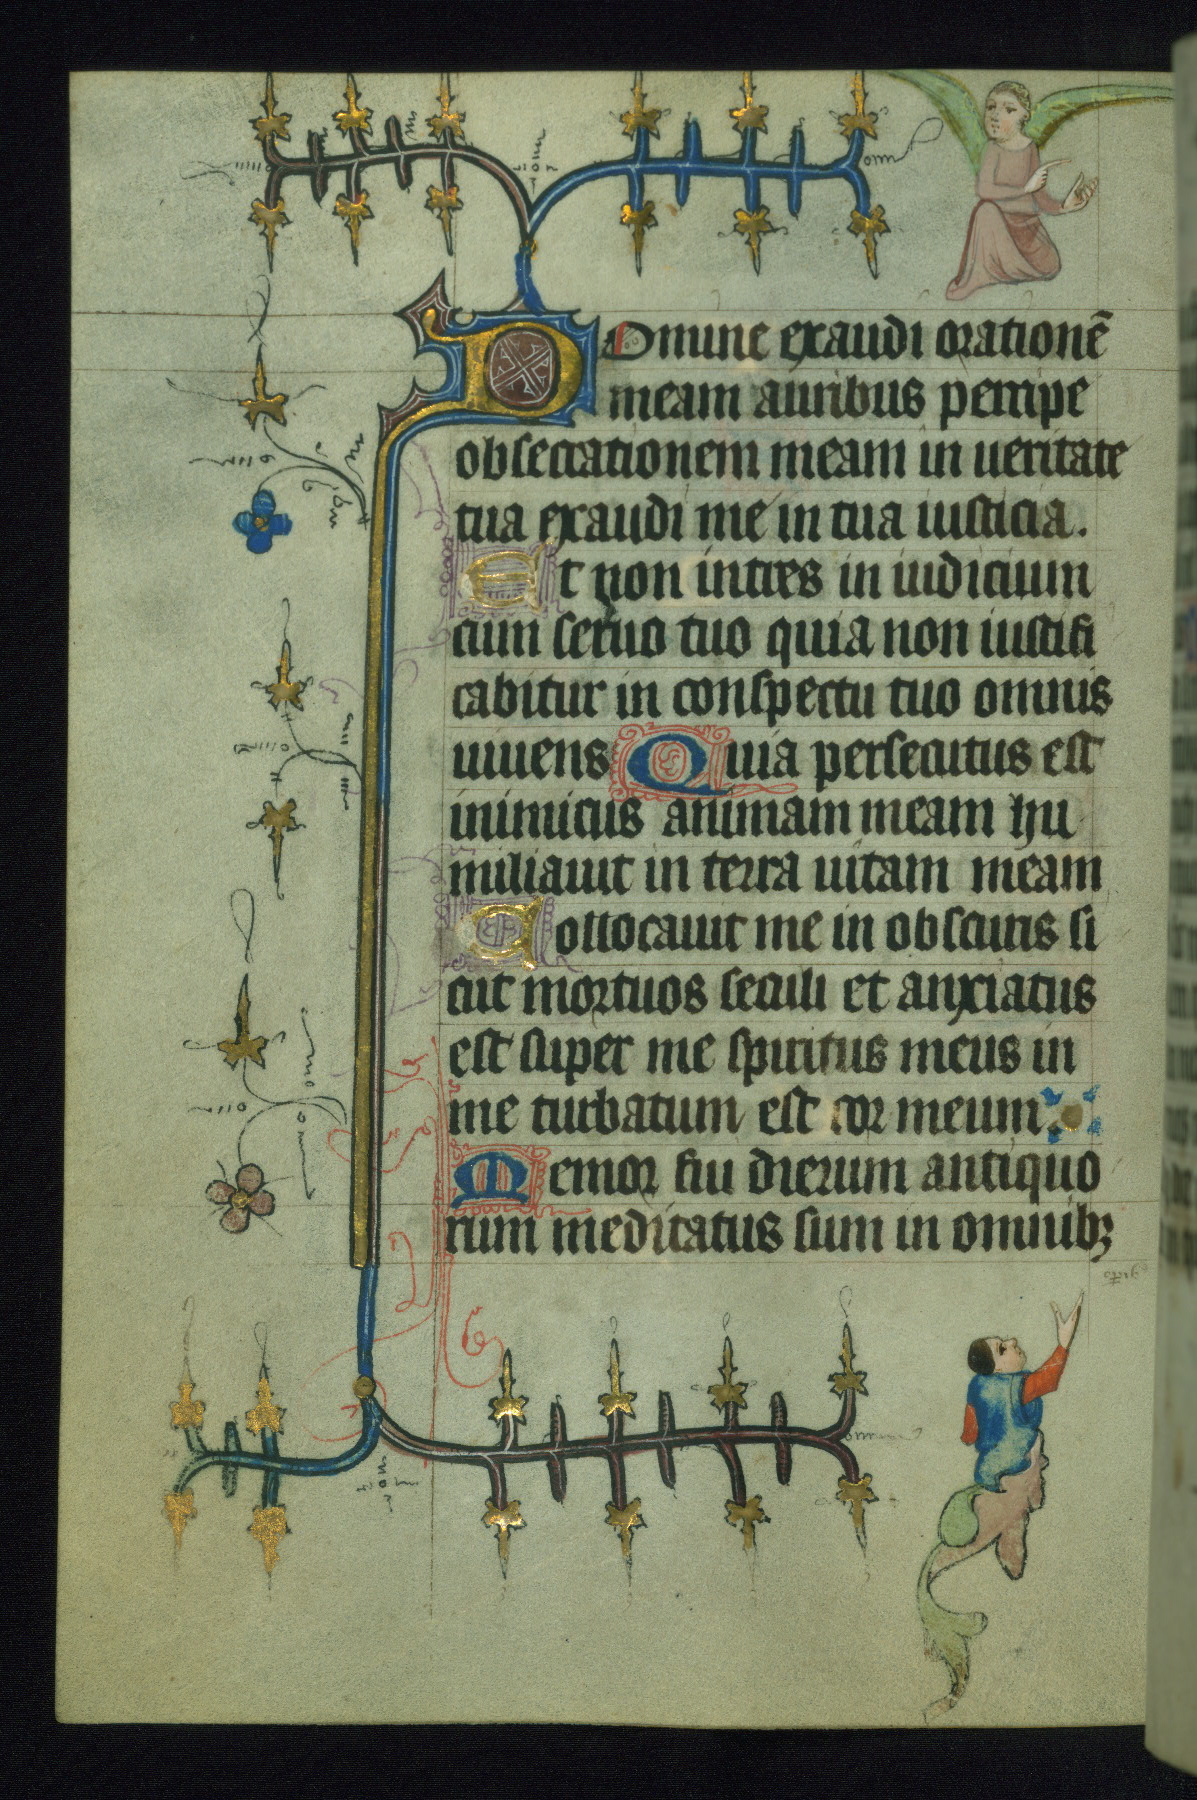 Domine exaudi orationē
meam auribus percipe
obsecrationem meam in ueritate
tua exaudi me in tua iusticia.
Et non intres in iudicium
cum seruo tuo quia non iustifi
cabitur in conspectu tuo omnis
uiuens Quia persecutus est
inimicus animam meam hu
miliauit in terra uitam meam
Collocauit me in obscuris si
cut mortuos seculi et anxiatus
est super me spiritus meus in
me turbatum est cor meum.
Memor fui dierum antiquo
rum meditatus sum in omnibꝫ